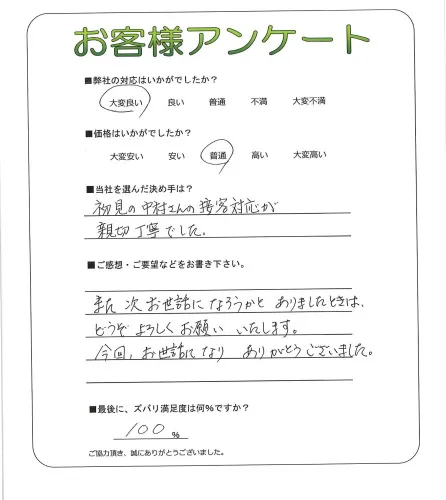 お客様アンケート
■弊社の対応はいかがでしたか?
大変良い 良い 普通 不満 大変不満
■価格はいかがでしたか?
大変安い 安い 普通 高い 大変高い
■当社を選んだ決め手は?
初見の中村さんの接客対応が
親切丁寧でした。
■ご感想・ご要望などをお書き下さい。
また 次 お世話に なろうかと ありましたときは、
どうぞ よろしく お願い いたします。
今回、お世話になり ありがとうございました。
■最後に、ズバリ満足度は何%ですか?
100 %
ご協力頂き、誠にありがとうございました。